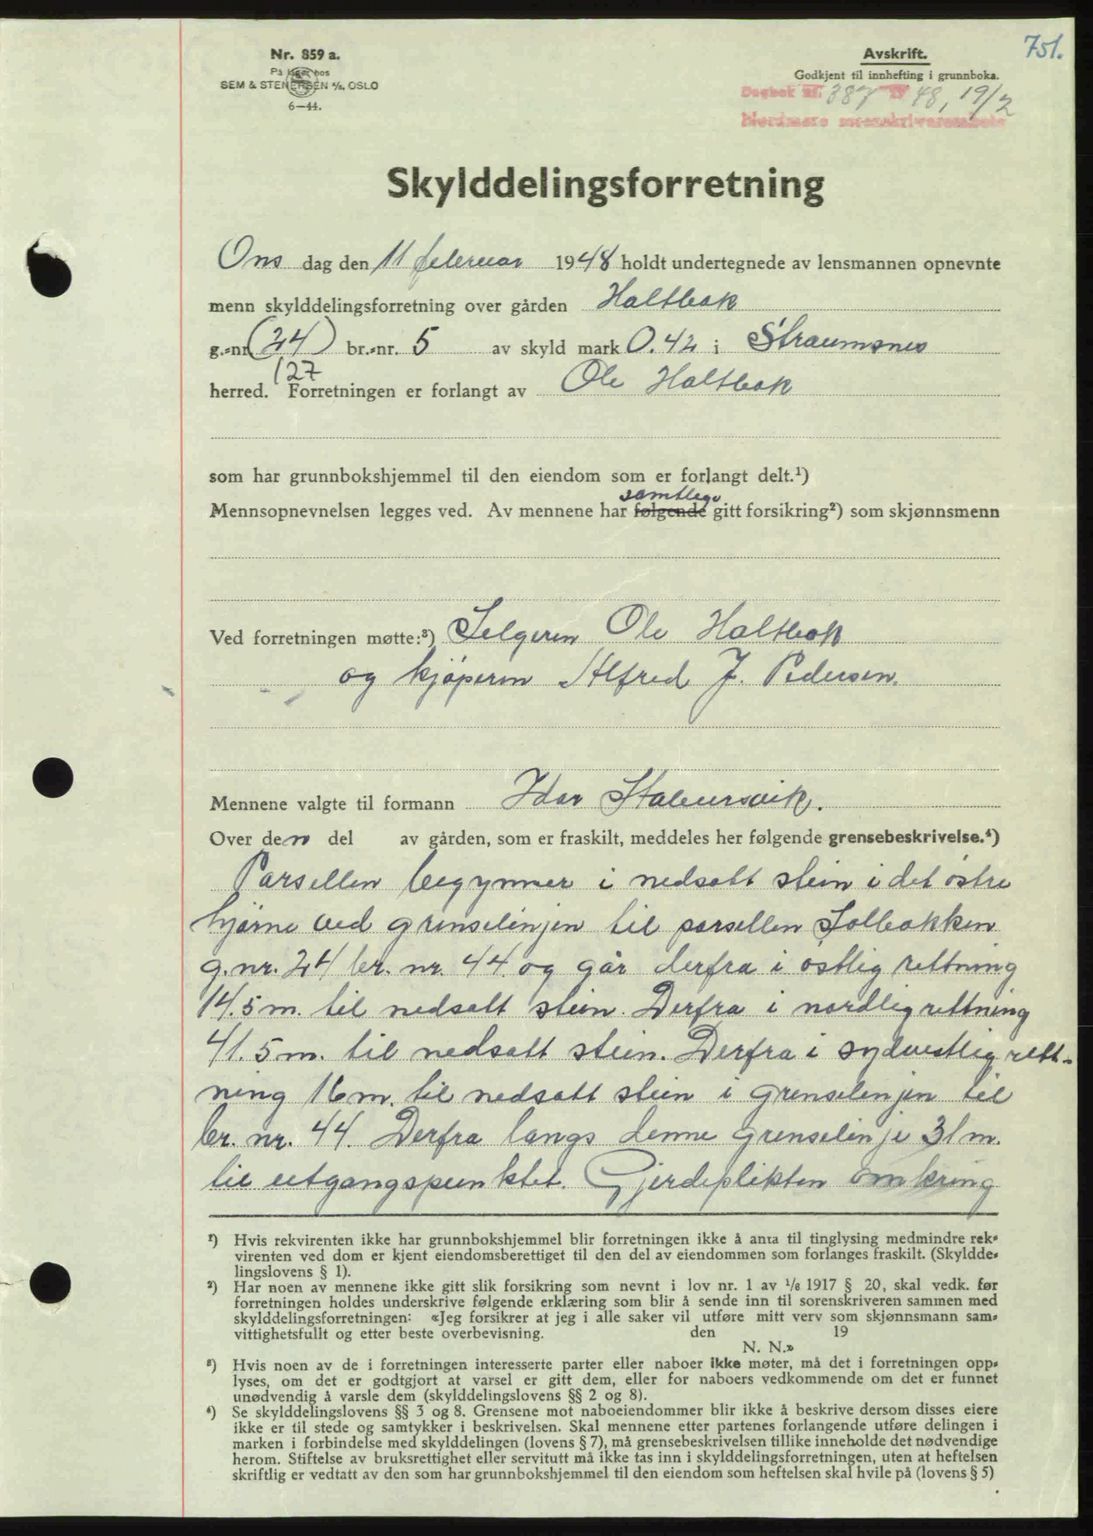 751.
Nr. 859 a.
På lager hos
SEM & STENERSEN A/S, OSLO
6—44.
Avskrift.
Godkjent til innhefting i grunnboka.
Dagbok nr. 387 19 48, 19/2
Nordmøre sorenskriverembete
Skylddelingsforretning
Ons dag den 11 februar 1948 holdt undertegnede av lensmannen opnevnte
menn skylddelingsforretning over gården Holtbak
g.-nr. (24) br.-nr. 5 av skyld mark 0.42 i Straumsnes
127
herred. Forretningen er forlangt av Ole Holtbak
som har grunnbokshjemmel til den eiendom som er forlangt delt.¹)
samtlege
Mennsopnevnelsen legges ved. Av mennene har følgende gitt forsikring²) som skjønnsmenn
Ved forretningen møtte:³) Selgeren Ole Holtbak
og kjøperen Alfred J. Pedersen.
Mennene valgte til formann Idar Stabursvik.
Over den del av gården, som er fraskilt, meddeles her følgende grensebeskrivelse.⁴)
Parsellen begynner i nedsatt stein i det østre
hjørne ved grenselinjen til parsellen Solbakken
g.nr. 24 br. nr. 44 og går derfra i østlig rettning
14.5 m. til nedsatt stein. Derfra i nordlig rettning
41.5 m. til nedsatt stein. Derfra i sydvestlig rett-
ning 16 m. til nedsatt stein i grenselinjen til
br. nr. 44. Derfra langs denne grenselinje 31 m.
til utgangspunktet. Gjerdeplikten omkring
¹) Hvis rekvirenten ikke har grunnbokshjemmel blir forretningen ikke å anta til tinglysing medmindre rek-
virenten ved dom er kjent eiendomsberettiget til den del av eiendommen som forlanges fraskilt. (Skyldde-
lingslovens § 1).
²) Har noen av mennene ikke gitt slik forsikring som nevnt i lov nr. 1 av ¹/₆ 1917 § 20, skal vedk. før
forretningen holdes underskrive følgende erklæring som blir å sende inn til sorenskriveren sammen med
skylddelingsforretningen: «Jeg forsikrer at jeg i alle saker vil utføre mitt verv som skjønnsmann sam-
vittighetsfullt og etter beste overbevisning. den 19
N. N.»
³) Hvis noen av de i forretningen interesserte parter eller naboer ikke møter, må det i forretningen opp-
lyses, om det er godtgjort at varsel er gitt dem, eller for naboers vedkommende om det er funnet
unødvendig å varsle dem (skylddelingslovens §§ 2 og 8).
⁴) Se skylddelingslovens §§ 3 og 8. Grensene mot naboeiendommer blir ikke å beskrive dersom disses eiere
ikke er til stede og samtykker i beskrivelsen. Skal mennene etter partenes forlangende utføre delingen i
marken i forbindelse med skylddelingen (lovens § 7), må grensebeskrivelsen tillike inneholde det nødvendige
herom. Stiftelse av bruksrettighet eller servitutt må ikke tas inn i skylddelingsforretningen, uten at heftelsen
skriftlig er vedtatt av den som har grunnbokshjemmel til den eiendom som heftelsen skal hvile på (lovens § 5)